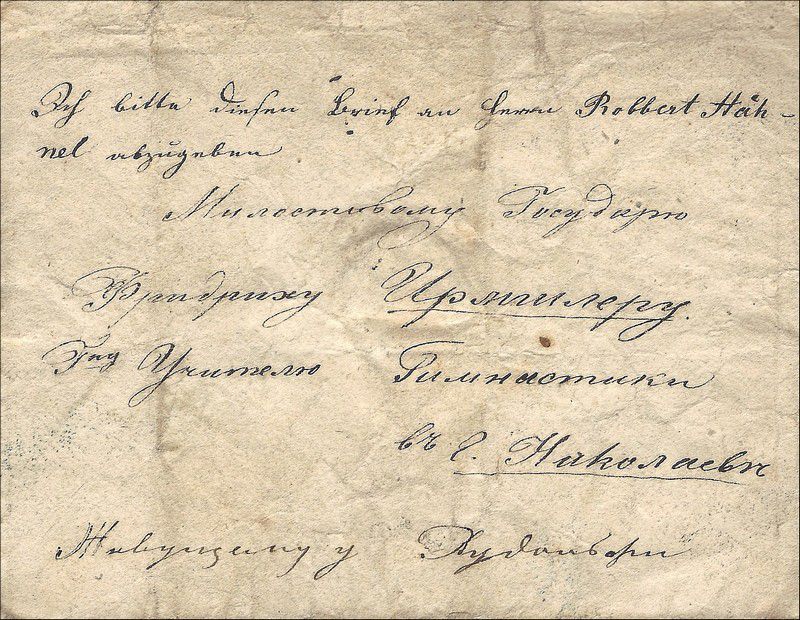 Ich bitte diesen Brief an Herrn Robbert Häh-
nel abzugeben
Милостивому Государю
Фридриху Ирмшлеру.
Гну Учителю Гимнастики
въ г. Николаевѣ
Живущему у